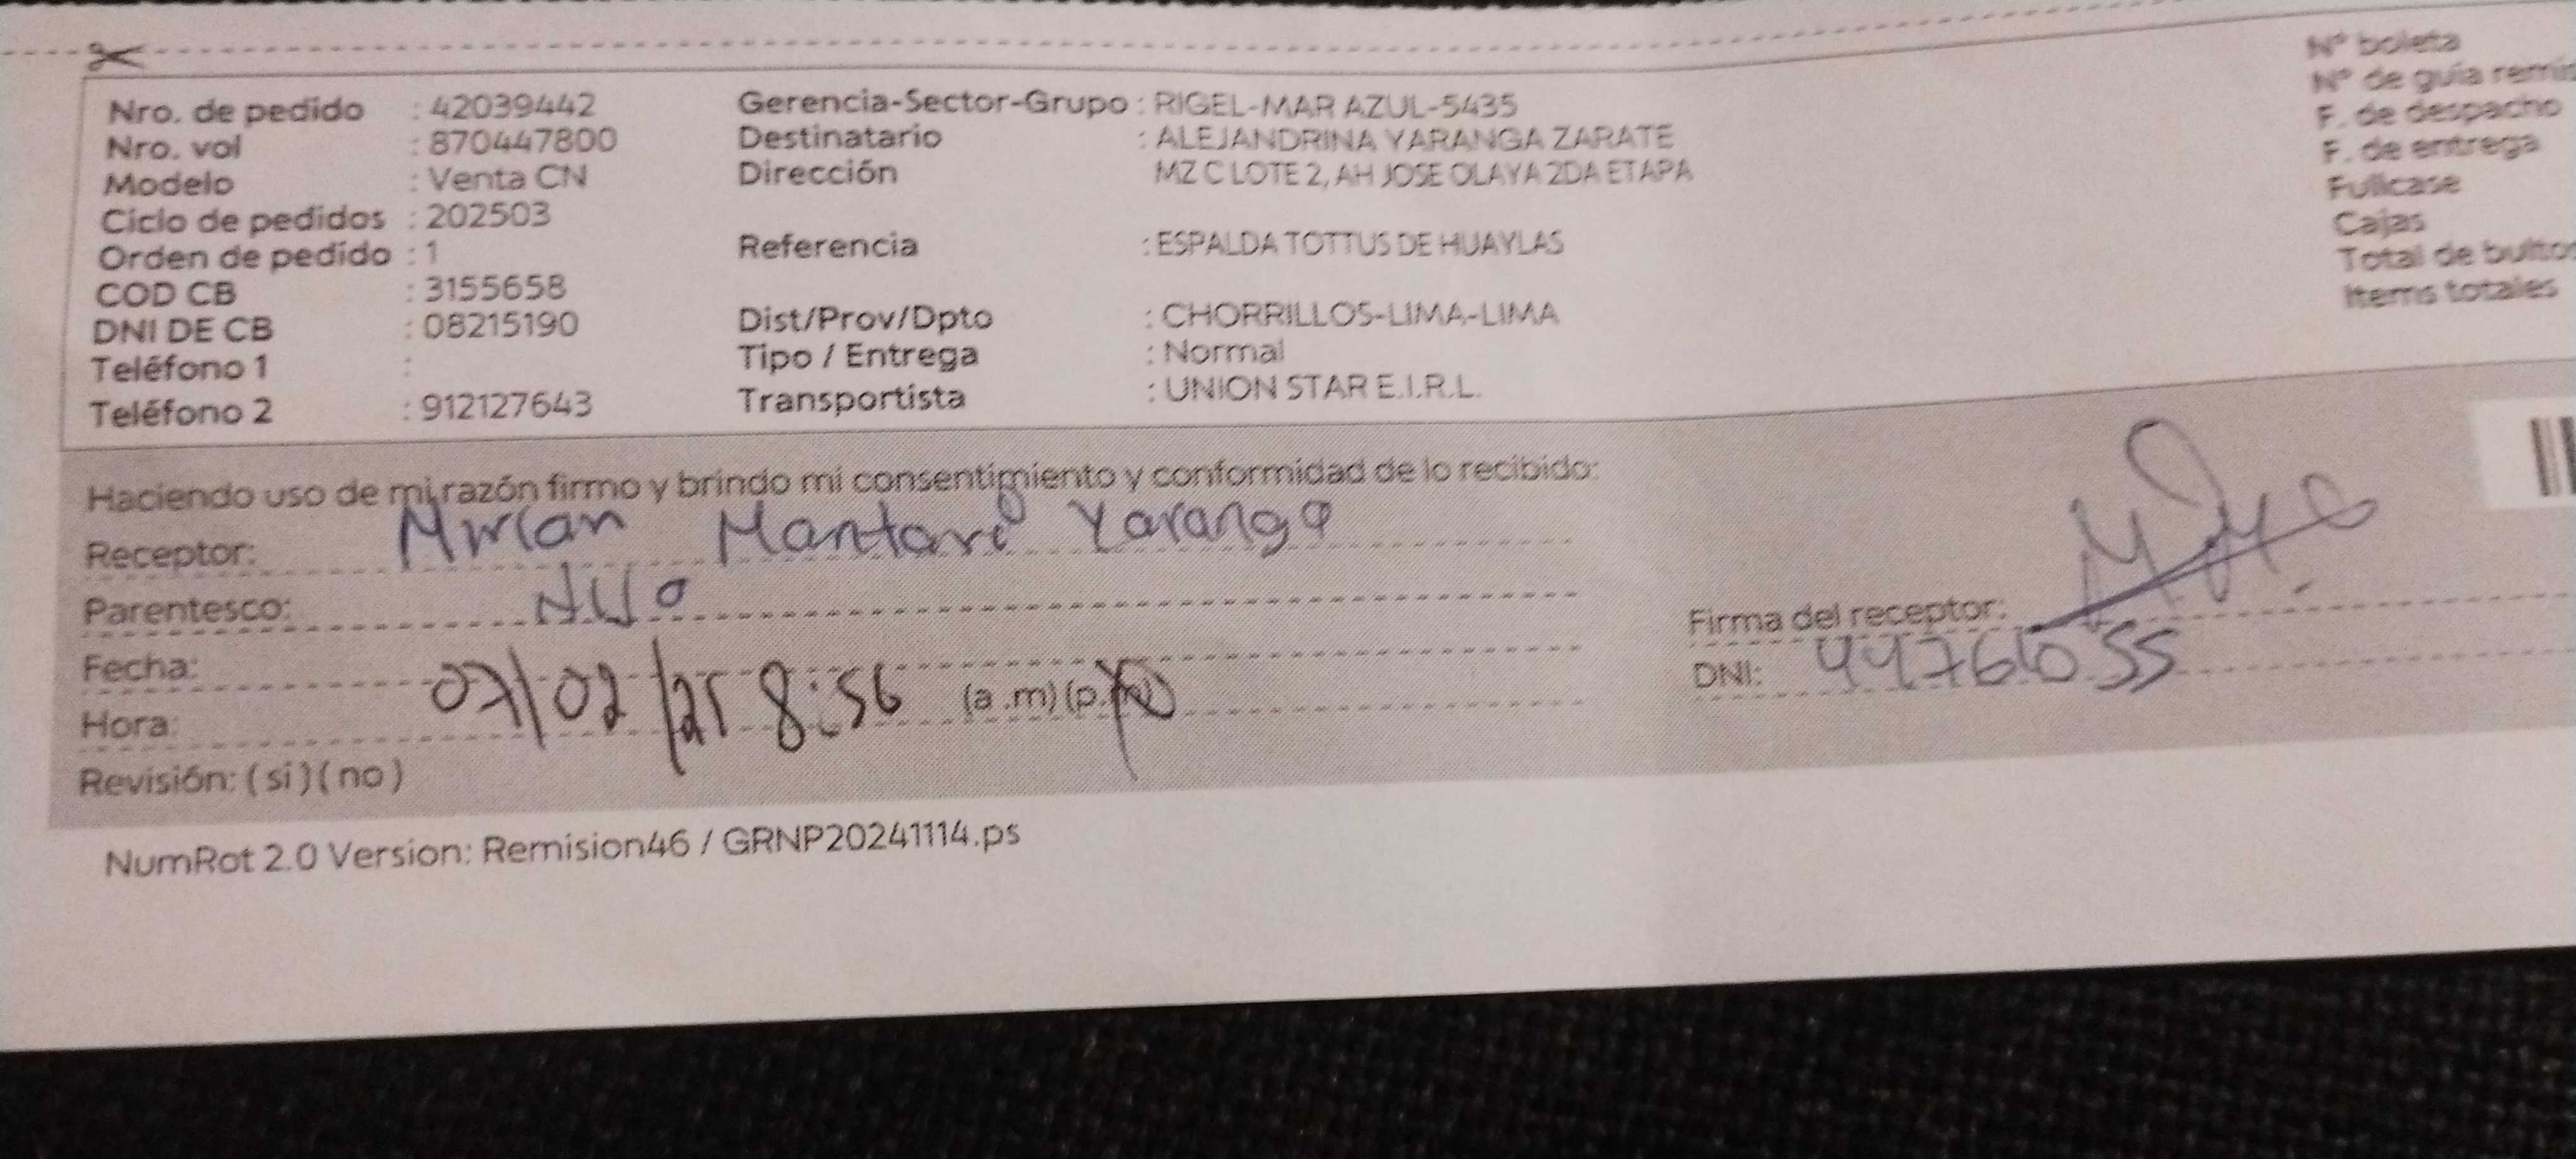 Nro. de pedido : 42039442
Nro. vol : 870447800
Modelo : Venta CN
Ciclo de pedidos : 202503
Orden de pedido : 1
COD CB : 3155658
DNI DE CB : 08215190
Teléfono 1 :
Teléfono 2 : 912127643
Gerencia-Sector-Grupo : RIGEL-MAR AZUL-5435
Destinatario : ALEJANDRINA YARANGA ZARATE
Dirección MZ C LOTE 2, AH JOSE OLAYA 2DA ETAPA
Referencia : ESPALDA TOTTUS DE HUAYLAS
Dist/Prov/Dpto : CHORRILLOS-LIMA-LIMA
Tipo / Entrega : Normal
Transportista : UNION STAR E.I.R.L.
N° boleta
N° de guía
F. de despacho
F. de entrega
Fullcase
Cajas
Total de
Items totales
Haciendo uso de mi razón firmo y brindo mi consentimiento y conformidad de lo recibido:
Receptor: Mirian Mantari Yaranga
Parentesco:
Fecha: 07/02/25
Hora: 8:56 (a.m)(p.m)
Revisión: (si)(no)
Firma del receptor:
DNI:
NumRot 2.0 Version: Remision46 / GRNP20241114.ps